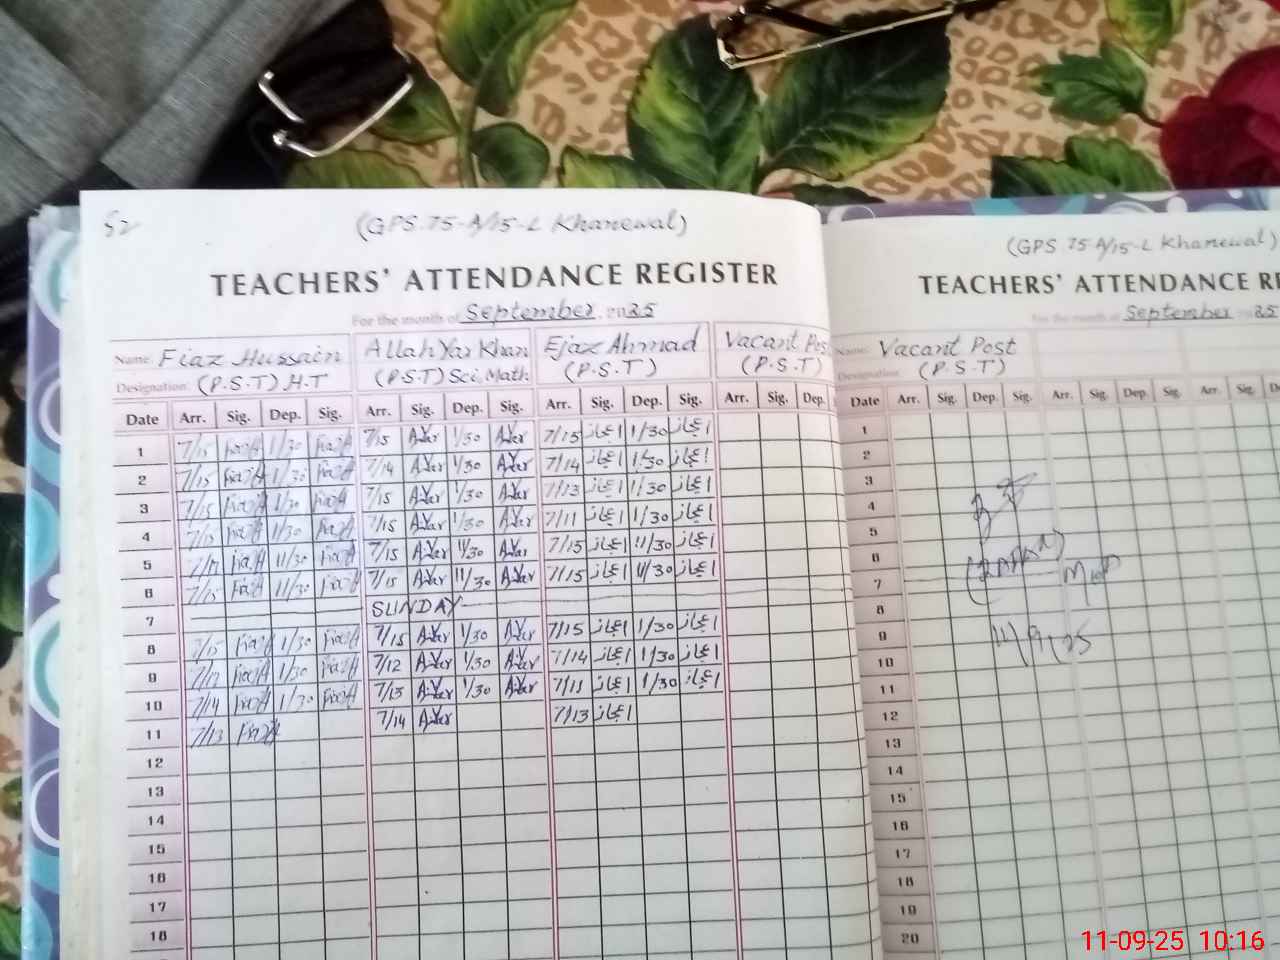 52
(GPS 75-A/15-L Khanewal)
TEACHERS' ATTENDANCE REGISTER
For the month of September, 2025
Name: Fiaz Hussain Allah Yar Khan Ejaz Ahmad Vacant Pos
Designation: (P.S.T) H.T (P.S.T) Sci. Math (P.S.T) (P.S.T)
Date Arr. Sig. Dep. Sig. Arr. Sig. Dep. Sig. Arr. Sig. Dep. Sig. Arr. Sig. Dep.
1 7/15 FiazH 1/30 FiazH 7/15 AYar 1/30 AYar 7/15 اعجاز 1/30 اعجاز
2 7/15 FiazH 1/30 FiazH 7/14 AYar 1/30 AYar 7/14 اعجاز 1/30 اعجاز
3 7/15 FiazH 1/30 FiazH 7/15 AYar 1/30 AYar 7/13 اعجاز 1/30 اعجاز
4 7/13 FiazH 1/30 FiazH 7/15 AYar 1/30 AYar 7/11 اعجاز 1/30 اعجاز
5 FiazH 11/30 FiazH 7/15 AYar 11/30 AYar 7/15 اعجاز 11/30 اعجاز
6 7/15 FiazH 11/30 FiazH 7/15 AYar 11/30 AYar 7/15 اعجاز 11/30 اعجاز
7 SUNDAY
8 7/15 FiazH 1/30 FiazH 7/15 AYar 1/30 AYar 7/15 اعجاز 1/30 اعجاز
9 7/12 FiazH 1/30 FiazH 7/12 AYar 1/30 AYar 7/14 اعجاز 1/30 اعجاز
10 7/14 FiazH 1/30 FiazH 7/13 AYar 1/30 AYar 7/11 اعجاز 1/30 اعجاز
11 7/13 FiazH 7/14 AYar 7/13 اعجاز
12
13
14
15
16
17
18
(GPS 75 A/15-L Khanewal)
TEACHERS' ATTENDANCE RE
For the month of September, 2025
Name: Vacant Post
Designation: (P.S.T)
Date Arr. Sig. Dep. Sig. Arr. Sig. Dep. Sig. Arr. Sig. D
1
2
3
4
5
6
7
8
9
10
11
12
13
14
15
16
17
18
19
20
11/9/25
11-09-25 10:16